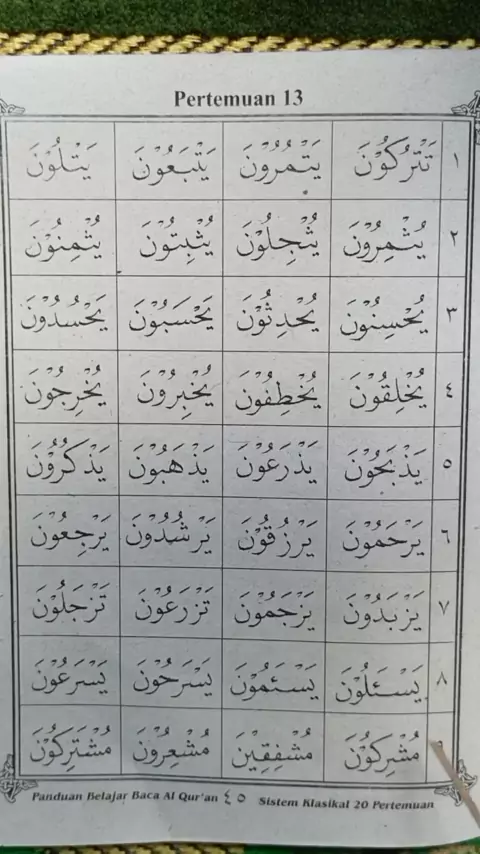 Pertemuan 13
١ تَتْرُكُوْنَ يَتْمُرُوْنَ يَتْبَعُوْنَ يَتْلُوْنَ
٢ يُثْمِرُوْنَ يُثْجِلُوْنَ يُثْبِتُوْنَ يُثْمِنُوْنَ
٣ يُحْسِنُوْنَ يُحْدِثُوْنَ يَحْسَبُوْنَ يَحْسُدُوْنَ
٤ يُخْلِقُوْنَ يُخْطِفُوْنَ يُخْبِرُوْنَ يُخْرِجُوْنَ
٥ يَذْبَحُوْنَ يَذْرَعُوْنَ يَذْهَبُوْنَ يَذْكُرُوْنَ
٦ يَرْحَمُوْنَ يَرْزُقُوْنَ يَرْشُدُوْنَ يَرْجِعُوْنَ
٧ يَزْبُدُوْنَ يَزْحَمُوْنَ تَزْرَعُوْنَ تَزْجَلُوْنَ
٨ يَسْـَٔلُوْنَ يَسْـَٔمُوْنَ يَسْرَحُوْنَ يَسْرَعُوْنَ
مُشْرِكُوْنَ مُشْفِقِيْنَ مُشْعِرُوْنَ مُشْتَرِكُوْنَ
Panduan Belajar Baca Al Qur'an ٤٥ Sistem Klasikal 20 Pertemuan